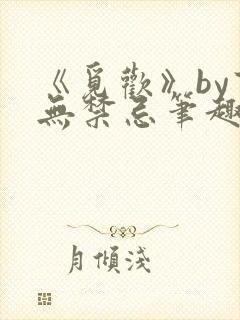 《覓歡》by
無禁忌筆趣
月傾淺